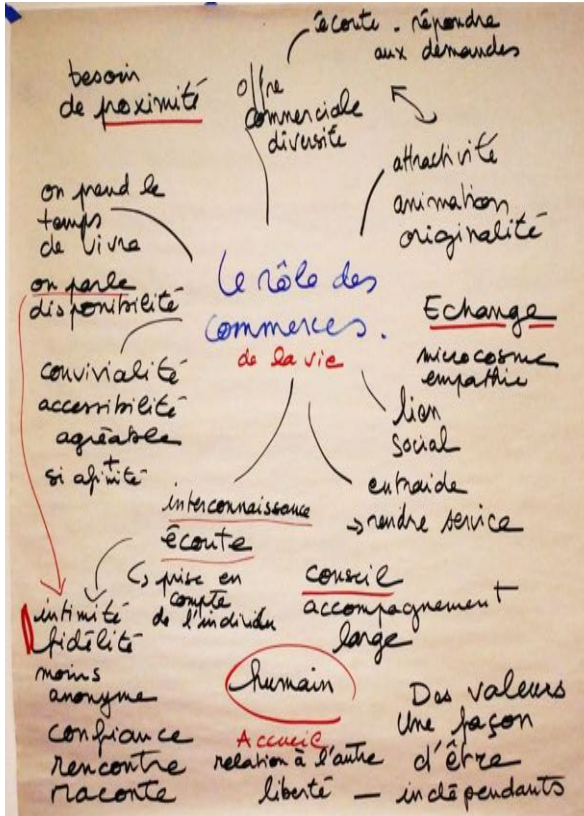 écoute. répondre
aux demandes
besoin
de proximité
offre
commerciale
diversité
attractivité
animation
originalité
on prend le
temps
de vivre
on parle
disponibilité
le rôle des
commerces.
de la vie
Echange
microcosme
empathie
convivialité
accessibilité
agréable
+
si afinité
lien
social
entraide
→ rendre service
interconnaissance
écoute
↳ prise en
compte
de l'individu
conseil
accompagnement
large
intimité
fidélité
moins
anonyme
confiance
rencontre
raconte
humain
Accueil
relation à l'autre
liberté — indépendants
Des valeurs
Une façon
d'être